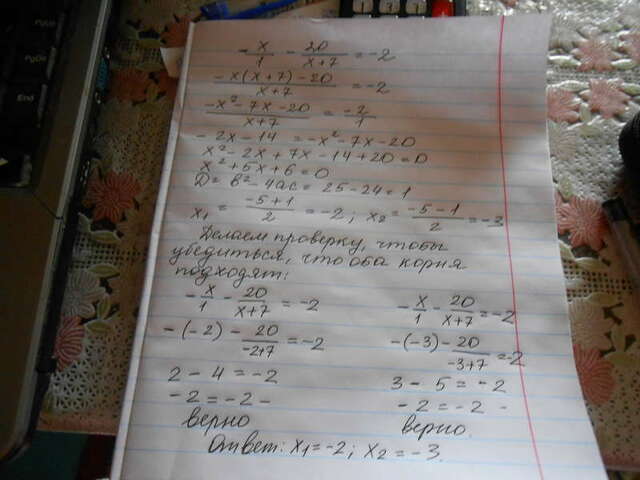 PgUp
PgDn
End
7 8 9
-x/1 - 20/(x+7) = -2
(-x(x+7)-20)/(x+7) = -2
(-x²-7x-20)/(x+7) = -2/1
-2x-14 = -x²-7x-20
x²-2x+7x-14+20=0
x²+5x+6=0
D=b²-4ac=25-24=1
x₁ = (-5+1)/2 = -2; x₂ = (-5-1)/2 = -3
Делаем проверку, чтобы
убедиться, что оба корня
подходят:
-x/1 - 20/(x+7) = -2   -x/1 - 20/(x+7) = -2
-(-2) - 20/(-2+7) = -2   -(-3) - 20/(-3+7) = -2
2 - 4 = -2   3 - 5 = -2
-2 = -2 -   -2 = -2 -
верно   верно.
Ответ: x₁=-2; x₂ = -3.